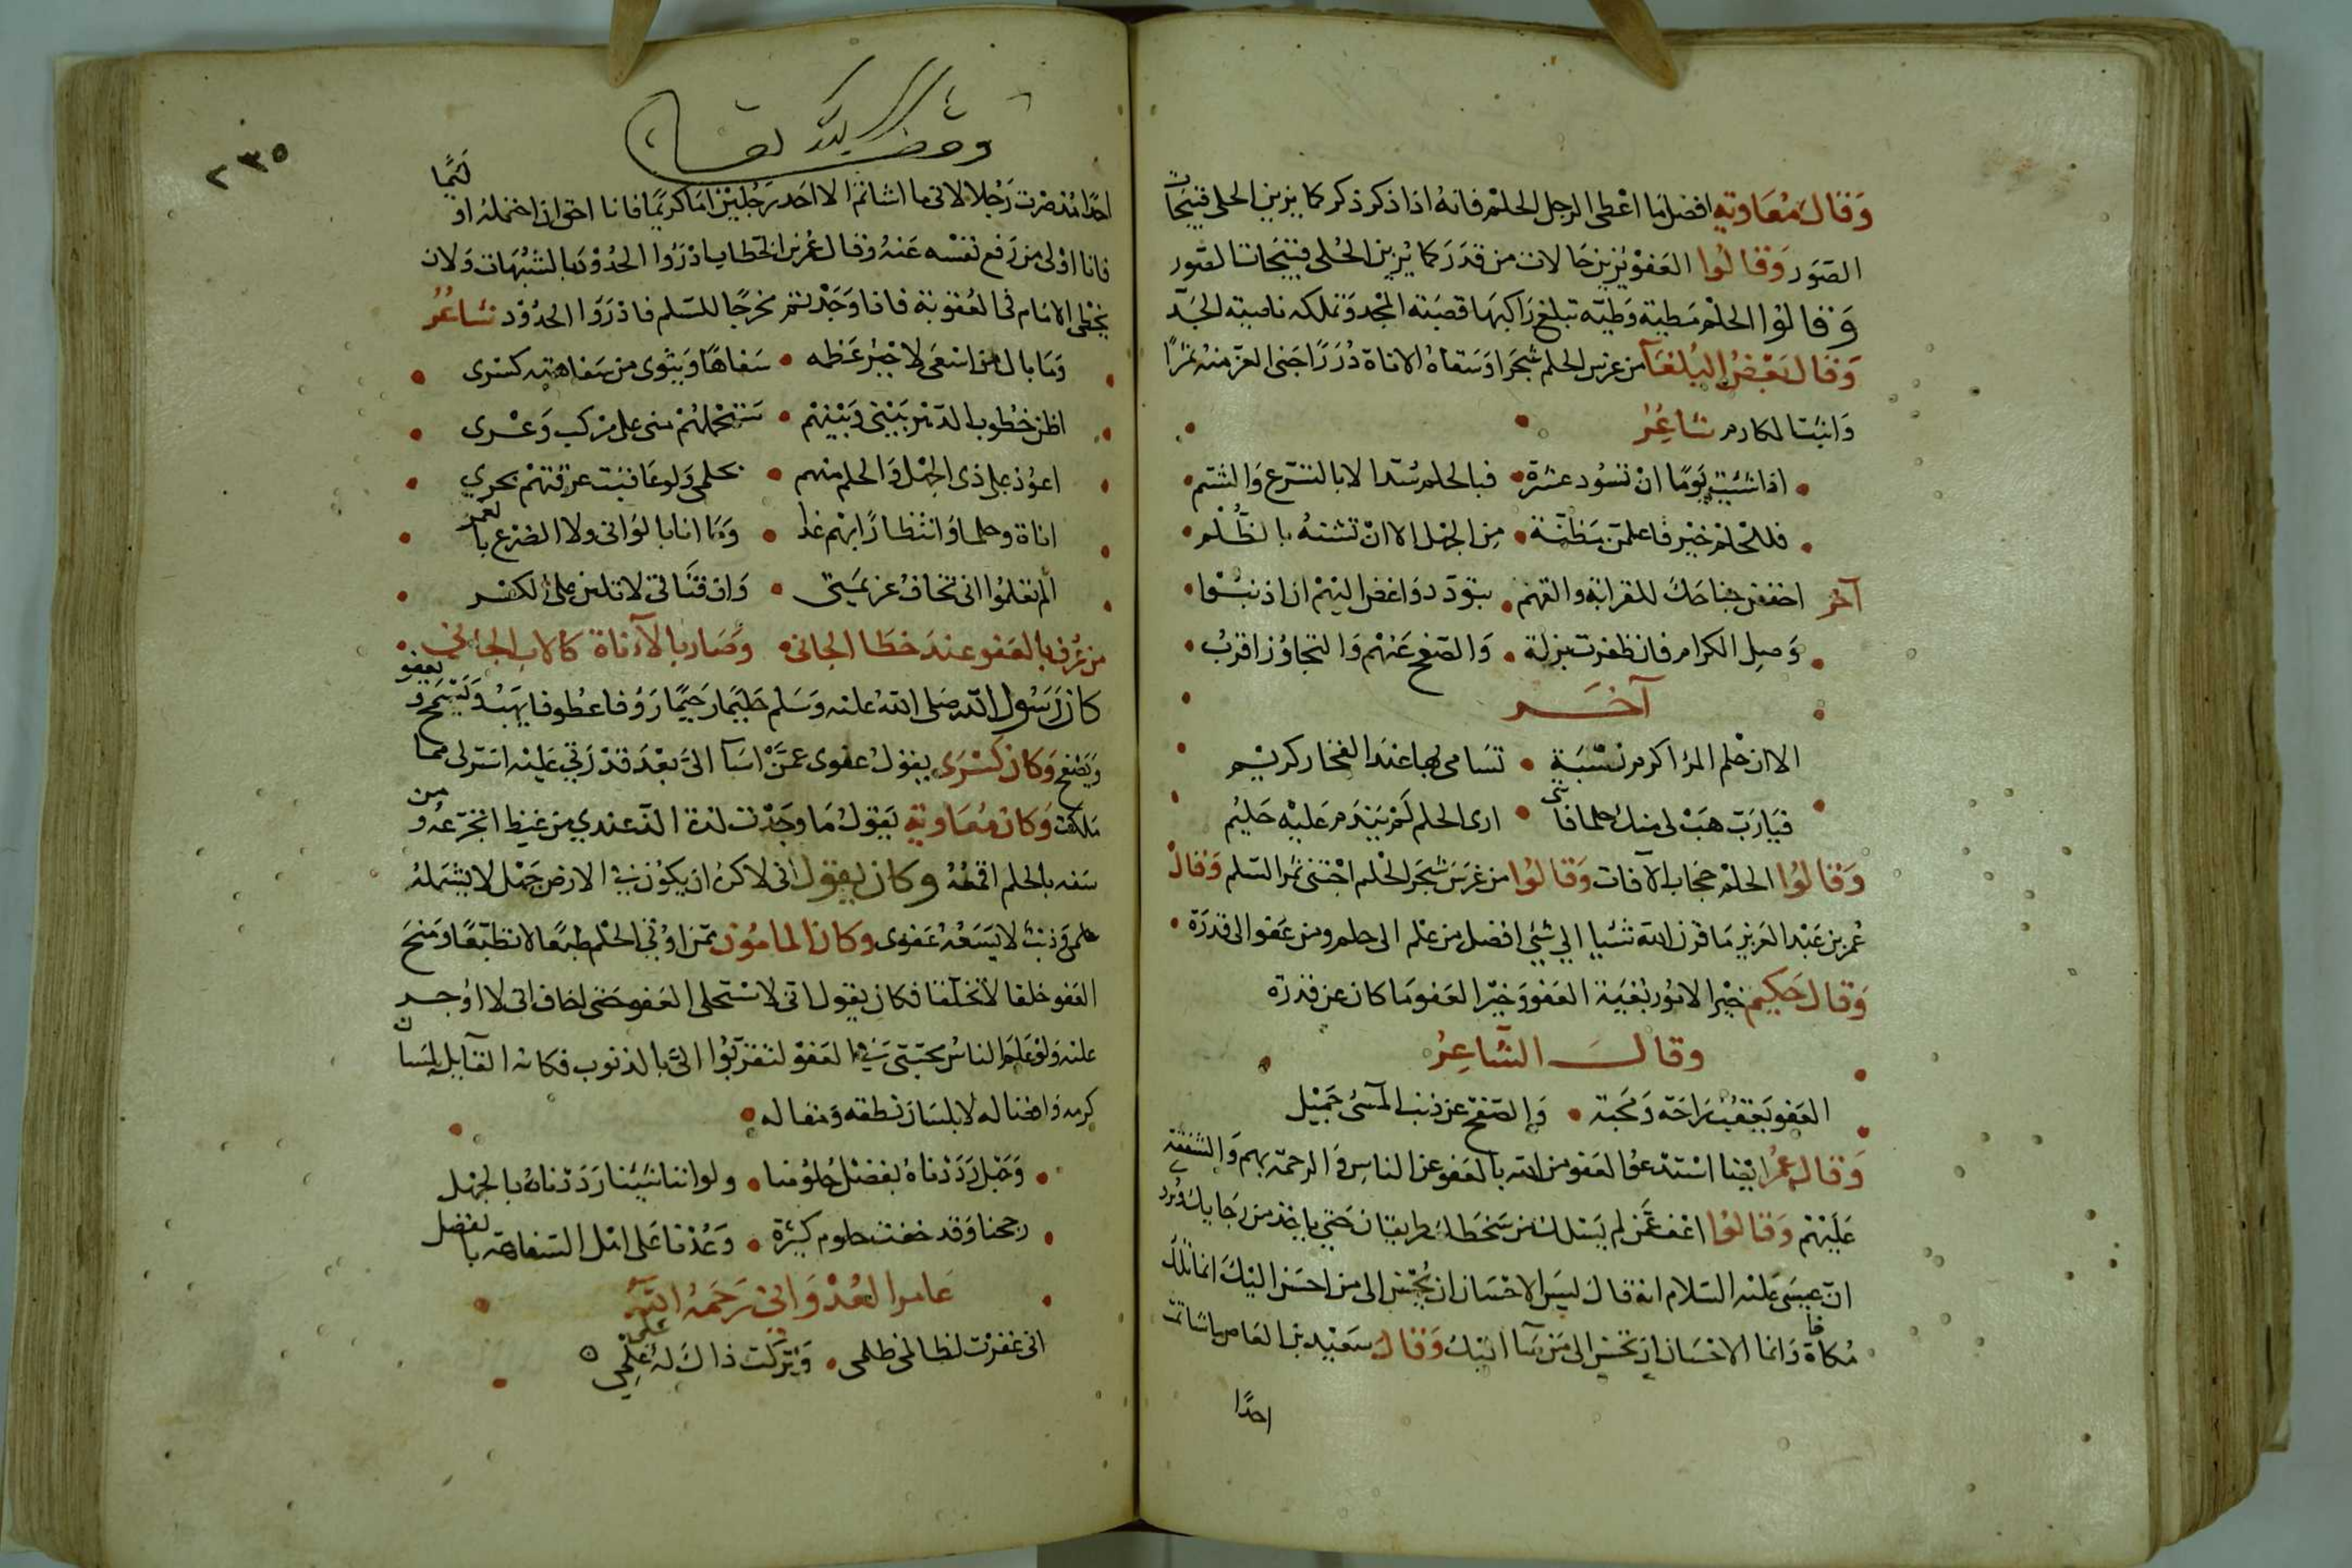 وَقَالَ مُعَاوية افضل ما اعْطى الرجل الحلم فانهُ اذا ذكر ذكر كما يزين الحلى قبيحات
الصّوَر وَقالُوا العَفوْ يُزين حَالات من قدَرَ كما يُزين الحُلى قبيحَات الصّور
وَقالوْا الحلمْ مَطية وَطيّه تبلغ رَاكبهَا قصَبَة المجْد وَتملكه ناصية الحَمد
وَقَال بَعْضُ البُلغَآ من غرس الحلم شجَرا وَسَقاهُ الاناة دُرَرًا جَنى العز منهُ ثمرًا
وَانبُت المكارم شاعِرُ
اذا شئتَ يَومًا انْ تسُود عشيرَة فبالحلم سُد لا بالتسَرّع وَالشتم
فللحْلم خيْر فاعلمن مَغبّة مِن الجهْل الا انْ تشنهُ بالظُلْم
آخر اخفض جناحَكَ للقرابة والقهم بتوَدد وَاغفر لهُم ان اذنبُوا
وَصِل الكرام فان ظفرت بزلة وَالصّفح عَنهُم وَالتجاوُز اقربُ
آخَر
الا ان حلم المرْا كرم نسْبَة تسَامى بها عندَ الفخار كريم
فيَا رَبّ هَبْ لى منك حلما فاننى ارى الحلم لَمْ يَندَم عَليْه حَليُم
وَقَالُوا الحلمْ حجاب الآفات وَقالوُا من غرَسَ شجَر الحْلم اجْتنى ثمر السّلم وَقالَ
عُمر بن عَبْد العَزيز مَا قرن الله شئيا الى شئ افضل من علْم الى حلم ومن عَفو الى قدرَة
وَقَال حَكيم خيْر الامُور مغبَة العَفو وَخيْر العَفو مَا كان عن قدرَة
وقالَ الشَّاعِرُ
العَفو يعقبُ رَاحَة وَمحبة وَالصّفح عن ذنب المسئ جَميْل
وَقال عُمر ايْضا اسْتدْعُوا العَفو من الله بالعَفو عن الناس وَالرحمة بهم وَالشفقة
عَلَيْهمْ وَقَالوُا
انّ عيسَى عَليْه السّلام انهُ قالَ ليسَ الاحْسَان ان تُحْسن الى من احسَن اليْكَ انما تلك
مُكافاة وَانما الاحْسَان ان تحْسن الى مَن سَآ اليْكَ وَقالَ سَعيْد بن العَاص ما شاتمت
احدًا
٢٣٥
وقف لله تعالى
احدًا مُنذ صرْت رَجُلا لانى ما اشاتم الا احَد رَجُليْن امَا كريْمًا فانا احق ان احْتملهُ او لئيما
فانا اوْلى من رَفع نفْسه عَنهُ وَقال عُمر بن الخطاب ادْرَؤا الحُدوْد بالشبُهَات وَلان
يخْطى الامَام فى العُقوبة فاذا وَجَدْتم مخرجًا للمسْلم فادْرَؤا الحدُوْد شاعُر
وَمَا بال من اسْعَى لاجْبُر عَظمه سَفاهًا وَينْوى من سَفاهته كسْرى
اظن خطوب الدّهْر بَيْنى وَبَيْنهُمْ سَتحْملهُمْ منى على مرْكب وَعْرى
اعوُد على ذى الجهْل وَالحلم منهم بحلمى وَلو عَاقبْت غرّقتهُمْ بحرى
اناة وحلما وَانتظارًا بهمْ غدا وَمَا انا بالوَانى ولا الضرع الغمر
الم تعلمُوا انى تخاف عزيمَتى وَان قنَاتى لا تلين على الكسْر
من عُرف بالعَفو عندَ خطَا الجانى وَصَار بالآناة كالاب الحانى
كان رَسُول الله صَلى الله عليْه وَسَلم حَليْمًا رَحيْمًا رَؤفا عطوفا يهَبُ وَيَسْمح وَيعفو
وَيَصْفح وَكان كسْرَى يقوْل عفوى عمَّنْ اسَآ الىّ بعْدَ قدْرَتى عَليْه اسَرّ لى مما
مَلكت وَكان مُعَاوية يقوْلُ مَا وجَدْت لذة الذ عندي من غيظ اتجرّعهُ ومن
سَفه بالحلم اقمعهُ وكان يقوْل انى لاكرهُ ان يكوُن فى الارض جَهْل لا يشمَلهُ
حلمى وَذنبٌ لا يَسَعهُ عَفوى وكان المامُون ممّن اوُتى الحلْم طبْعًا لا تطبّعًا وَمنحَ
العَفو خلقا لا تخلّقا فكان يقوُل انى لاسْتحلى العَفو حَتى اخاف انى لا اوُجر
عليْه وَلوْ عَلمَ الناسُ محَبّتى فى العَفوْ لتقرّبُوا الىَّ بالذنوب فكانه القايل بلسَان
كرمه وَافضاله لا بلسَان نطقه وَمقاله
وَجَهْل رَدَدْناهُ بفضْل حُلوُمنا ولو اننا شيْنا رَدَدْناهُ بالجهْل
رجحنا وَقد خفت حلوم كثيْرَة وَعُدْنا عَلى اهْل السّفاهة بالفضل
عَامر العُدْوَانى رَحَمهُ اللهُ
انى غفرْت لظالمى ظلمى وَتركت ذاكَ لهُ على علْمِي